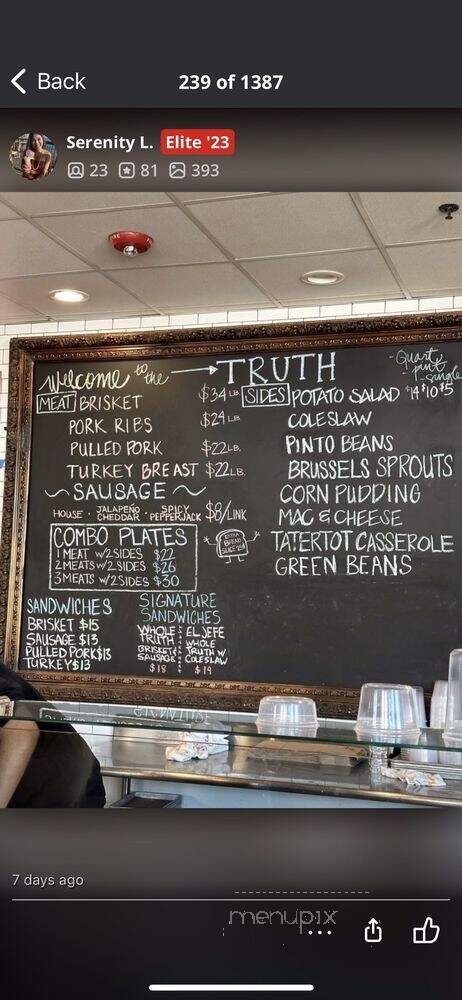 Back
239 of 1387
Serenity L. Elite '23
23 81 393
Welcome to the → TRUTH
- Quart, pint, single
MEAT BRISKET $34 LB
PORK RIBS $24 LB
PULLED PORK $22 LB.
TURKEY BREAST $22 LB.
~ SAUSAGE ~
HOUSE · JALAPEÑO CHEDDAR · SPICY PEPPERJACK $8/LINK
COMBO PLATES
1 MEAT W/2 SIDES $22
2 MEATS W/2 SIDES $26
3 MEATS W/2 SIDES $30
EXTRA BREAD
SIDES POTATO SALAD $14 $10 $5
COLESLAW
PINTO BEANS
BRUSSELS SPROUTS
CORN PUDDING
MAC & CHEESE
TATERTOT CASSEROLE
GREEN BEANS
SANDWICHES
BRISKET $15
SAUSAGE $13
PULLED PORK $13
TURKEY $13
SIGNATURE
SANDWICHES
WHOLE TRUTH
BRISKET & SAUSAGE
$18
EL JEFE
WHOLE TRUTH W/ COLESLAW
$19
7 days ago
menupix